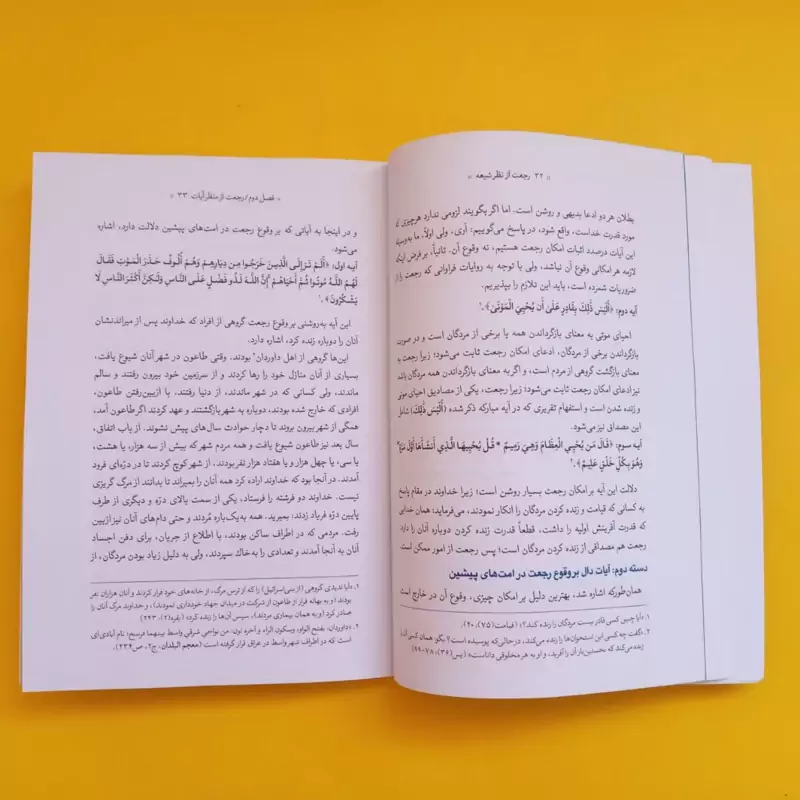 « ۳۲ رجعت از نظر شیعه »
بطلان هر دو ادعا بدیهی و روشن است. اما اگر بگویند لزومی ندارد هر چیزی که
مورد قدرت خداست، واقع شود، در پاسخ می‌گوییم: آری، ولی اولاً، ما به‌وسیله
این آیات درصدد اثبات امکان رجعت هستیم، نه وقوع آن. ثانیاً، بر فرض اینکه
لازمه هر امکانی وقوع آن نباشد، ولی با توجه به روایات فراوانی که رجعت را از
ضروریات شمرده است، باید این تلازم را بپذیریم.
آیه دوم: ﴿أَلَيْسَ ذَٰلِكَ بِقَادِرٍ عَلَىٰ أَن يُحْيِيَ الْمَوْتَىٰ﴾.۱
احیای موتی به معنای بازگرداندن همه یا برخی از مردگان است و در صورت
بازگرداندن برخی از مردگان، ادعای امکان رجعت ثابت می‌شود؛ زیرا رجعت به
معنای بازگشت گروهی از مردم است، و اگر به معنای بازگرداندن همه مردگان باشد
نیز ادعای امکان رجعت ثابت می‌شود؛ زیرا رجعت، یکی از مصادیق احیای موتی
و زنده شدن است و استفهام تقریری که در آیه مبارکه ذکر شده ﴿أَلَيْسَ ذَٰلِكَ﴾ شامل
این مصداق نیز می‌شود.
آیه سوم: ﴿قَالَ مَن يُحْيِي الْعِظَامَ وَهِيَ رَمِيمٌ * قُلْ يُحْيِيهَا الَّذِي أَنشَأَهَا أَوَّلَ مَرَّةٍ
وَهُوَ بِكُلِّ خَلْقٍ عَلِيمٌ﴾.۲
دلالت این آیه بر امکان رجعت بسیار روشن است؛ زیرا خداوند در مقام پاسخ
به کسانی که قیامت و زنده کردن مردگان را انکار نمودند، می‌فرماید: همان خدایی
که قدرت آفرینش اولیه را داشت، قطعاً قدرت زنده کردن دوباره آنان را دارد
رجعت هم مصداقی از زنده کردن مردگان است؛ پس رجعت از امور ممکن است
دسته دوم: آیات دال بر وقوع رجعت در امت‌های پیشین
همان‌طورکه اشاره شد، بهترین دلیل بر امکان چیزی، وقوع آن در خارج است
۱. «آیا چنین کسی قادر نیست مردگان را زنده کند؟» (قیامت(۷۵)، ۴۰).
۲. «گفت چه کسی این استخوان‌ها را زنده می‌کند، درحالی‌که پوسیده است؟ بگو: همان کسی آن را
زنده می‌کند که نخستین‌بار آن را آفرید، و او به هر مخلوقی داناست» (یس(۳۶)، ۷۸-
« فصل دوم/ رجعت از منظر آیات ۳۳ »
و در اینجا به آیاتی که بر وقوع رجعت در امت‌های پیشین دلالت دارد، اشاره
می‌شود.
آیه اول: ﴿أَلَمْ تَرَ إِلَى الَّذِينَ خَرَجُوا مِن دِيَارِهِمْ وَهُمْ أُلُوفٌ حَذَرَ الْمَوْتِ فَقَالَ
لَهُمُ اللَّهُ مُوتُوا ثُمَّ أَحْيَاهُمْ إِنَّ اللَّهَ لَذُو فَضْلٍ عَلَى النَّاسِ وَلَٰكِنَّ أَكْثَرَ النَّاسِ لَا
يَشْكُرُونَ﴾.۱
این آیه به‌روشنی بر وقوع رجعت گروهی از افراد که خداوند پس از میراندنشان
آنان را دوباره زنده کرد، اشاره دارد.
این‌ها گروهی از اهل داوردان۲ بودند، وقتی طاعون در شهر آنان شیوع یافت،
بسیاری از آنان منازل خود را رها کردند و از سرزمین خود بیرون رفتند و سالم
ماندند، ولی کسانی که در شهر ماندند، از دنیا رفتند. با ازبین‌رفتن طاعون،
افرادی که خارج شده بودند، دوباره به شهر بازگشتند و عهد کردند اگر طاعون آمد،
همگی از شهر بیرون بروند تا دچار حوادث سال‌های پیش نشوند. از باب اتفاق،
سال بعد نیز طاعون شیوع یافت و همه مردم شهر که بیش از سه هزار، یا هشت،
یا سی، یا چهل هزار و یا هفتاد هزار نفر بودند، از شهر کوچ کردند تا در دره‌ای فرود
آمدند. در آنجا بود که خداوند اراده کرد همه آنان را بمیراند تا بدانند از مرگ گریزی
نیست. خداوند دو فرشته را فرستاد، یکی از سمت بالای دره و دیگری از طرف
پایین دره فریاد زدند: بمیرید. همه به‌یک‌باره مُردند و حتی دام‌های آنان نیز ازبین
رفت. مردمی که در اطراف ساکن بودند، با اطلاع از جریان، برای دفن اجساد
آنان به آنجا آمدند و تعدادی را به خاک سپردند، ولی به دلیل زیاد بودن مردگان، از
۱. «آیا ندیدی گروهی (از بنی‌اسرائیل) را که از ترس مرگ، از خانه‌های خود فرار کردند و آنان هزاران نفر
بودند (و به بهانه فرار از طاعون از شرکت در میدان جهاد خودداری نمودند)، و خداوند مرگ آنان را
صادر کرد (و به همان بیماری مردند)، سپس آن‌ها را زنده کرد» (بقره(۲)، ۲۴۳).
۲. «داوردان، بفتح الواو، وسکون الراء و آخره نون: من نواحی شرقی واسط بینهما فرسخ»؛ نام آبادی‌ای
است که در اطراف شهر واسط در عراق قرار گرفته است (معجم البلدان، ج۲، ص۴۳۴).